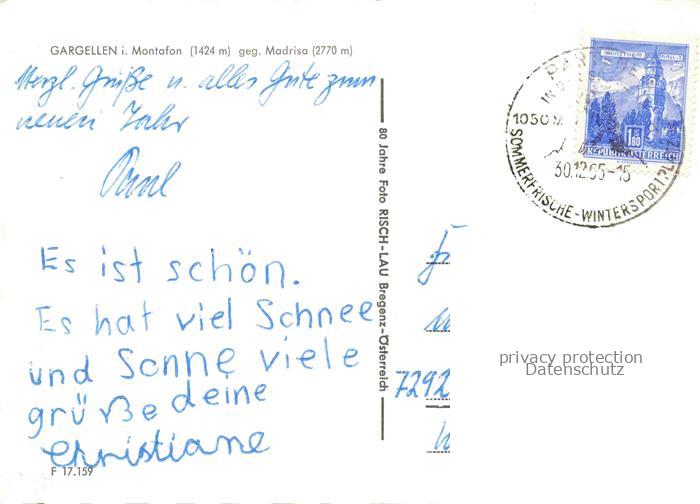 GARGELLEN i. Montafon (1424 m) geg. Madrisa (2770 m)
Herzl. Grüße u. alles Gute zum
neuen Jahr
Paul
Es ist schön.
Es hat viel Schnee
und Sonne viele
grüße deine
Christiane
F 17.159
80 Jahre Foto RISCH-LAU Bregenz-Österreich
1050 M
30.12.65-15
SOMMERFRISCHE-WINTERSPORTPLATZ
MÜNZTURM HALL I.T.
1.80
REPUBLIK ÖSTERREICH
7292
privacy protection
Datenschutz